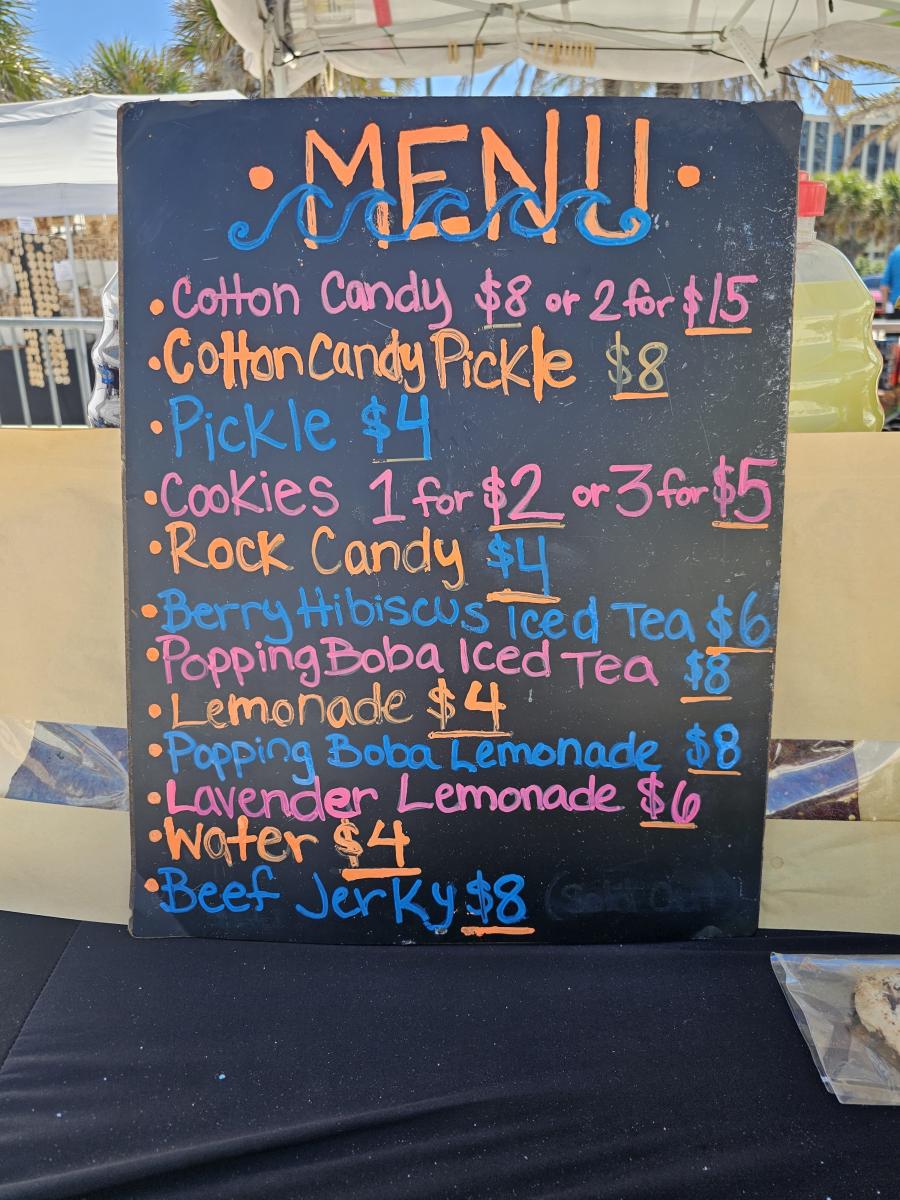 • MENU •
• Cotton Candy $8 or 2 for $15
• Cotton Candy Pickle $8
• Pickle $4
• Cookies 1 for $2 or 3 for $5
• Rock Candy $4
• Berry Hibiscus Iced Tea $6
• Popping Boba Iced Tea $8
• Lemonade $4
• Popping Boba Lemonade $8
• Lavender Lemonade $6
• Water $4
• Beef Jerky $8 (Sold Out)